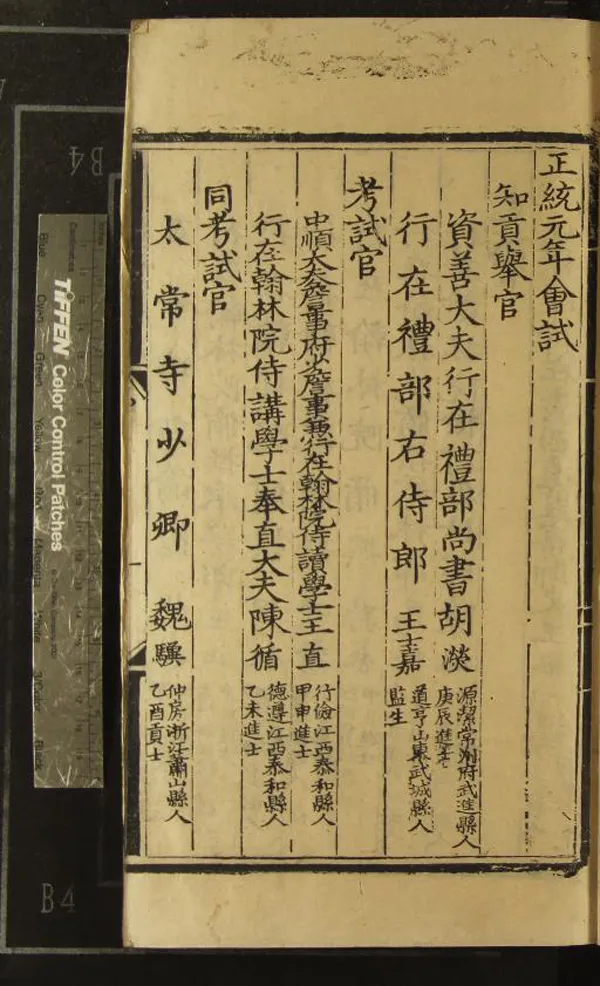 正統元年會試
知貢舉官
資善大夫行在禮部尚書胡濙
源潔常州府武進縣人
庚辰進士
行在禮部右侍郎 王士嘉
道亨山東武城縣人
監生
考試官
中順大夫詹事府少詹事兼行在翰林院侍讀學士王直
行儉江西泰和縣人
甲申進士
行在翰林院侍講學士奉直大夫陳循
德遵江西泰和縣人
乙未進士
同考試官
太常寺少卿 魏驥
仲房浙江蕭山縣人
乙酉貢士
B4
TIFFEN Color Control Patches
Blue
Green
Yellow
Red
Magenta
White
3/Color
Black
B4